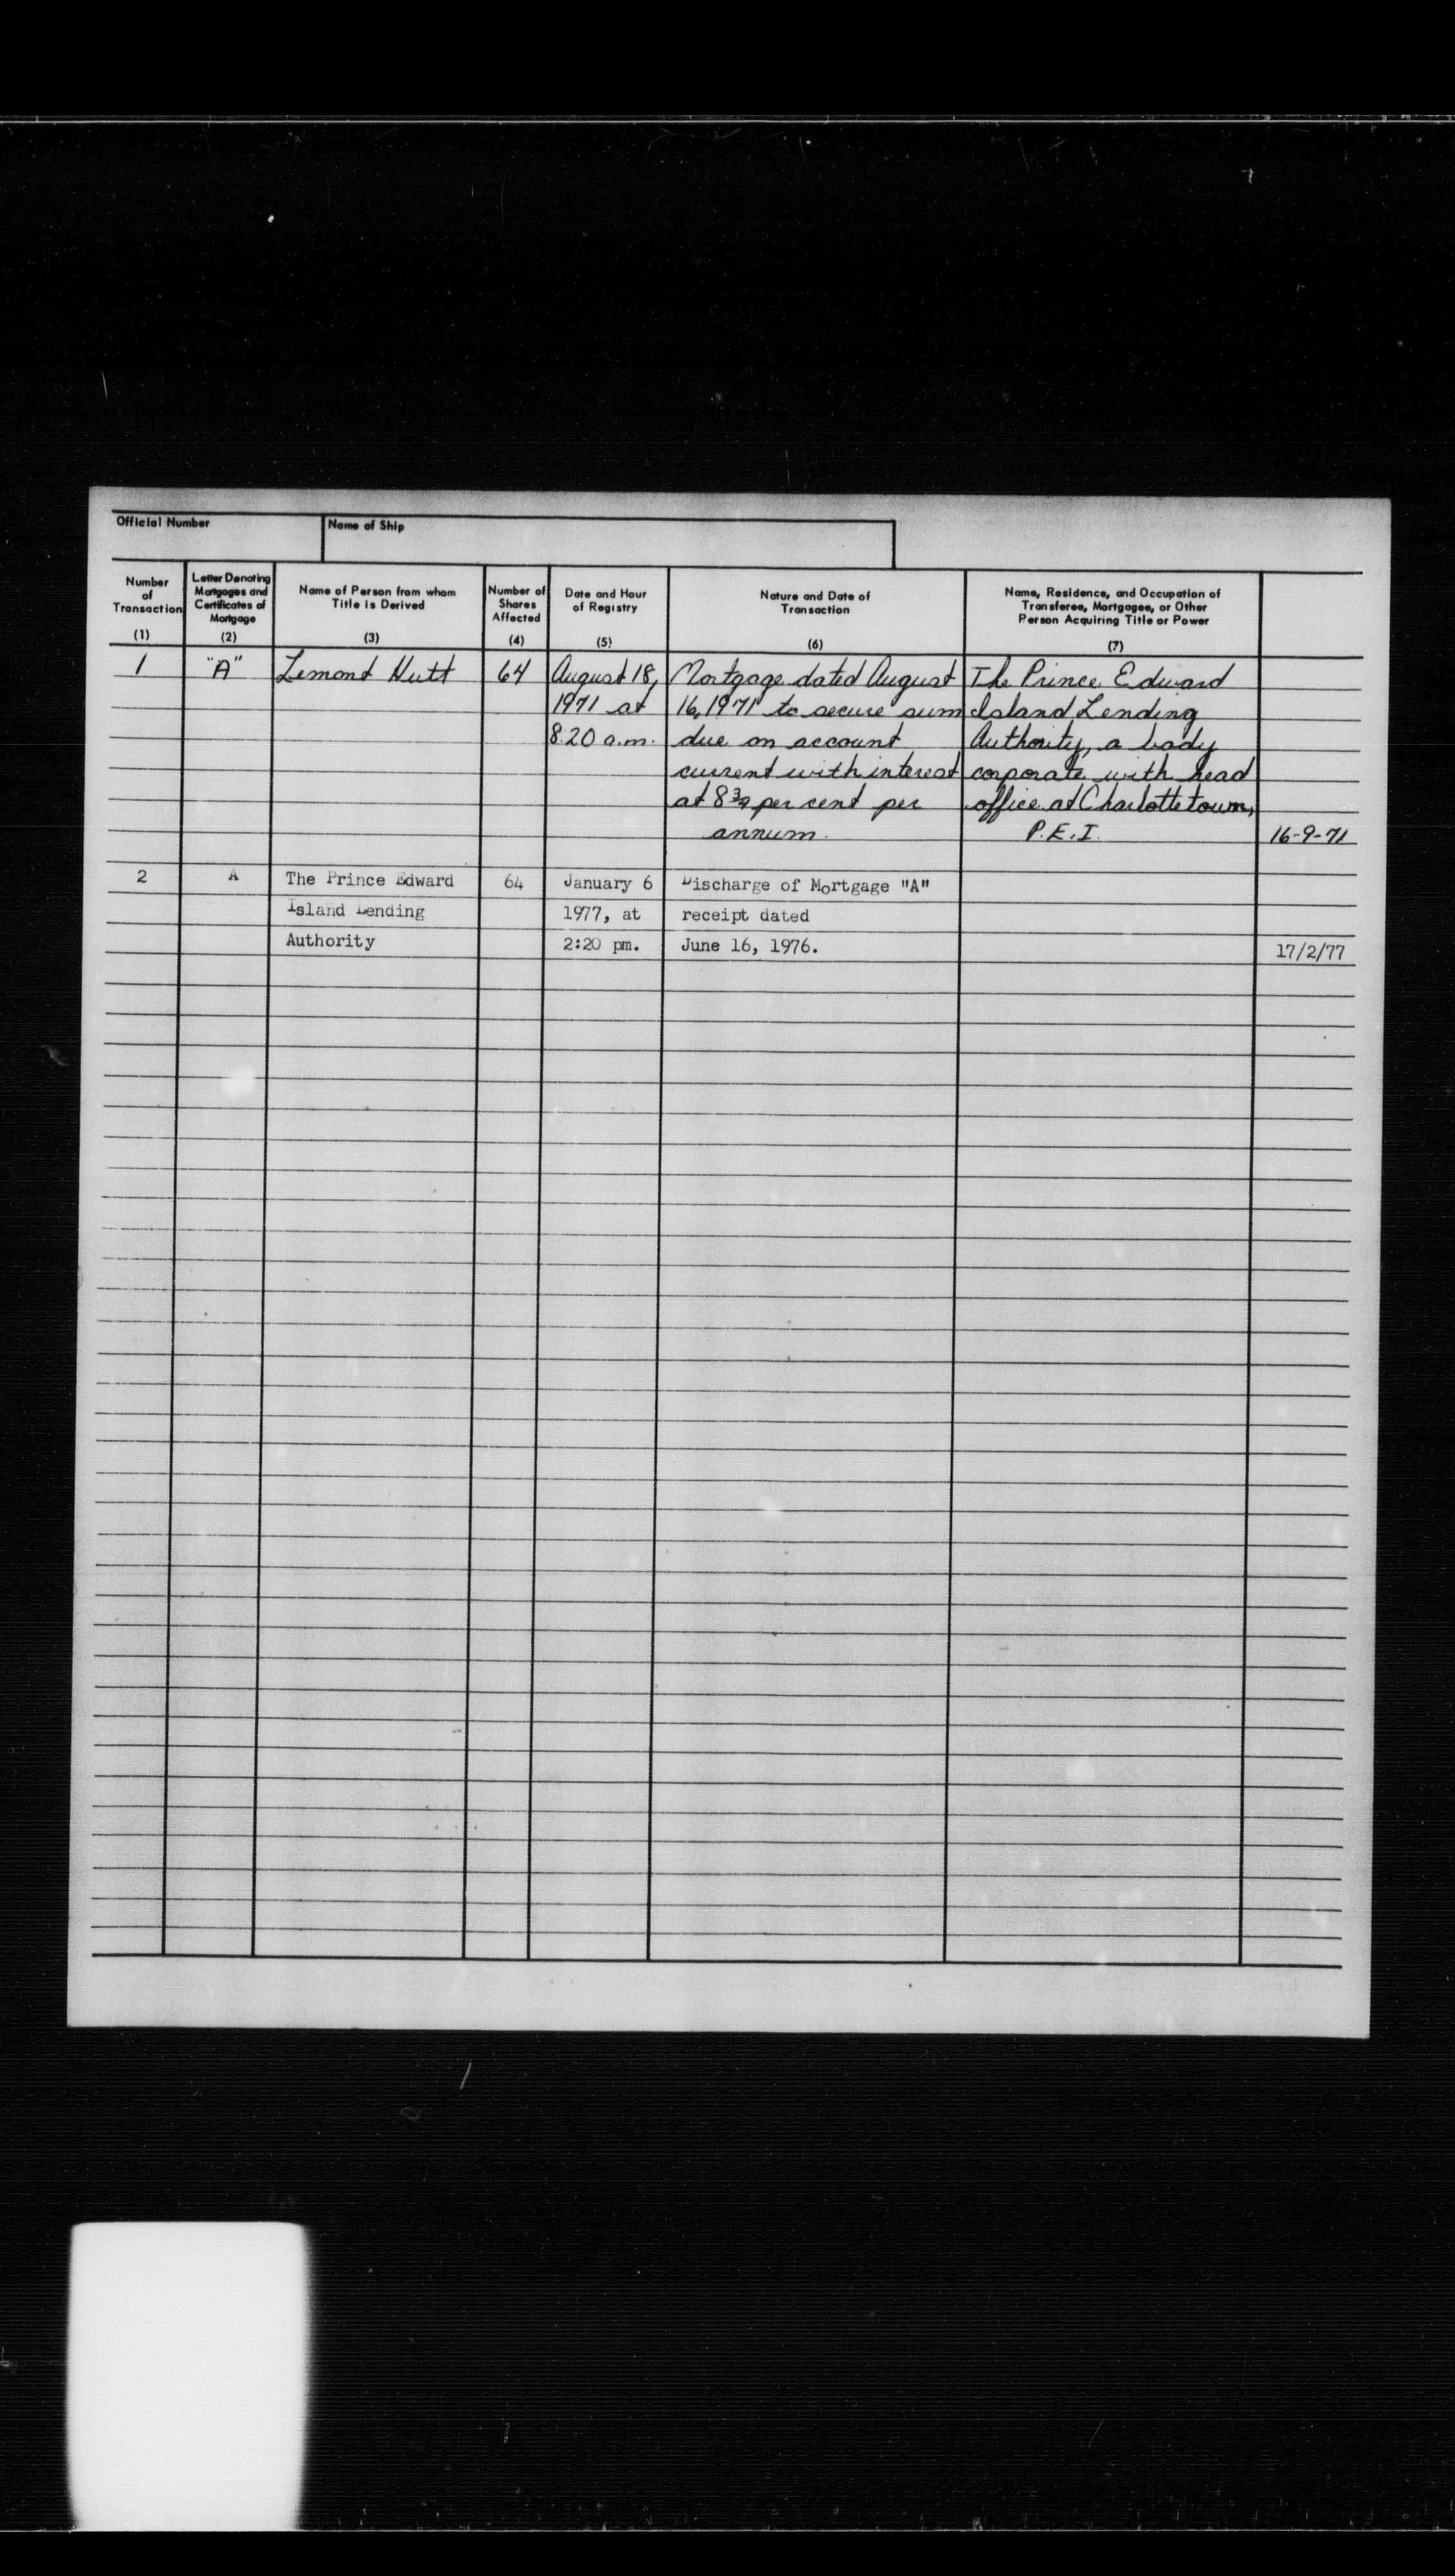 Official Number Name of Ship
Number of Transaction (1) Letter Denoting Mortgages and Certificates of Mortgage (2) Name of Person from whom Title is Derived (3) Number of Shares Affected (4) Date and Hour of Registry (5) Nature and Date of Transaction (6) Name, Residence, and Occupation of Transferee, Mortgagee, or Other Person Acquiring Title or Power (7)
1 "A" Lemont Hutt 64 August 18, Mortgage dated August The Prince Edward
1971 at 16, 1971 to secure sum Island Lending
8.20 a.m. due on account Authority, a body
current with interest corporate with head
at 8 3/4 per cent per office at Charlottetown,
annum. P.E.I. 16-9-71
2 A The Prince Edward 64 January 6 Discharge of Mortgage "A"
Island Lending 1977, at receipt dated
Authority 2:20 pm. June 16, 1976. 17/2/77